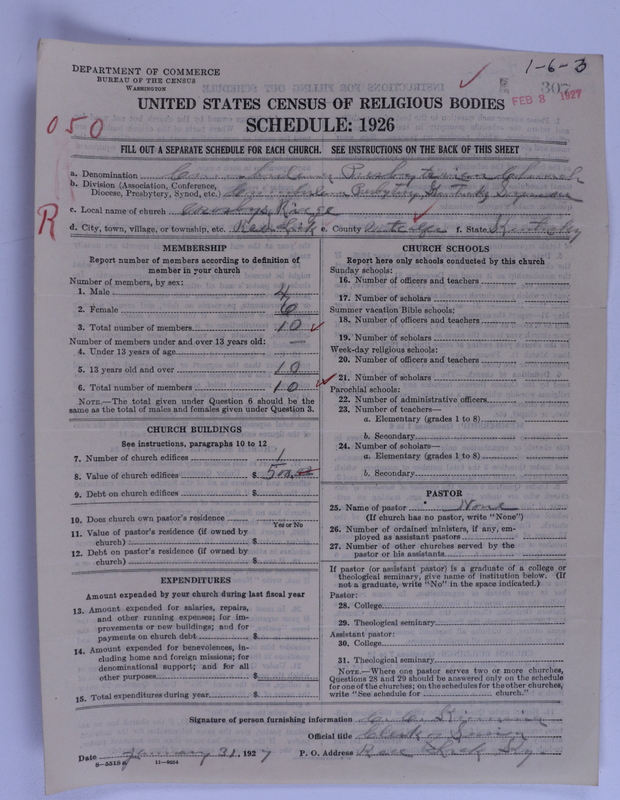 1-6-3
DEPARTMENT OF COMMERCE
BUREAU OF THE CENSUS
WASHINGTON
307
FEB 8 1927
UNITED STATES CENSUS OF RELIGIOUS BODIES
050
SCHEDULE: 1926
FILL OUT A SEPARATE SCHEDULE FOR EACH CHURCH. SEE INSTRUCTIONS ON THE BACK OF THIS SHEET
a. Denomination Presbyterian Church
b. Division (Association, Conference,
Diocese, Presbytery, Synod, etc.) Presbytery Kentucky
c. Local name of church Ridge
R
d. City, town, village, or township, etc. Lick e. County Metcalfe f. State Kentucky
MEMBERSHIP
Report number of members according to definition of
member in your church
Number of members, by sex:
1. Male 4
2. Female 6
3. Total number of members 10
Number of members under and over 13 years old:
4. Under 13 years of age —
5. 13 years old and over 10
6. Total number of members 10
NOTE.—The total given under Question 6 should be the
same as the total of males and females given under Question 3.
CHURCH BUILDINGS
See instructions, paragraphs 10 to 12
7. Number of church edifices 1
8. Value of church edifices $ 500.00
9. Debt on church edifices $
10. Does church own pastor's residence
Yes or No
11. Value of pastor's residence (if owned by
church) $
12. Debt on pastor's residence (if owned by
church) $
EXPENDITURES
Amount expended by your church during last fiscal year
13. Amount expended for salaries, repairs,
and other running expenses; for im-
provements or new buildings; and for
payments on church debt $
14. Amount expended for benevolences, in-
cluding home and foreign missions; for
denominational support; and for all
other purposes $
15. Total expenditures during year $
CHURCH SCHOOLS
Report here only schools conducted by this church
Sunday schools:
16. Number of officers and teachers
17. Number of scholars
Summer vacation Bible schools:
18. Number of officers and teachers
19. Number of scholars
Week-day religious schools:
20. Number of officers and teachers
21. Number of scholars
Parochial schools:
22. Number of administrative officers
23. Number of teachers—
a. Elementary (grades 1 to 8)
b. Secondary
24. Number of scholars—
a. Elementary (grades 1 to 8)
b. Secondary
PASTOR
25. Name of pastor None
(If church has no pastor, write "None")
26. Number of ordained ministers, if any, em-
ployed as assistant pastors
27. Number of other churches served by the
pastor or his assistants
If pastor (or assistant pastor) is a graduate of a college or
theological seminary, give name of institution below. (If
not a graduate, write "No" in the space indicated.)
Pastor:
28. College
29. Theological seminary
Assistant pastor:
30. College
31. Theological seminary
NOTE.—When one pastor serves two or more churches,
Questions 28 and 29 should be answered only on the schedule
for one of the churches; on the schedules for the other churches,
write "See schedule for church."
Signature of person furnishing information
Official title Clerk of Session
Date January 31, 1927 P. O. Address Lick Ky.
8-5519a 11-9264